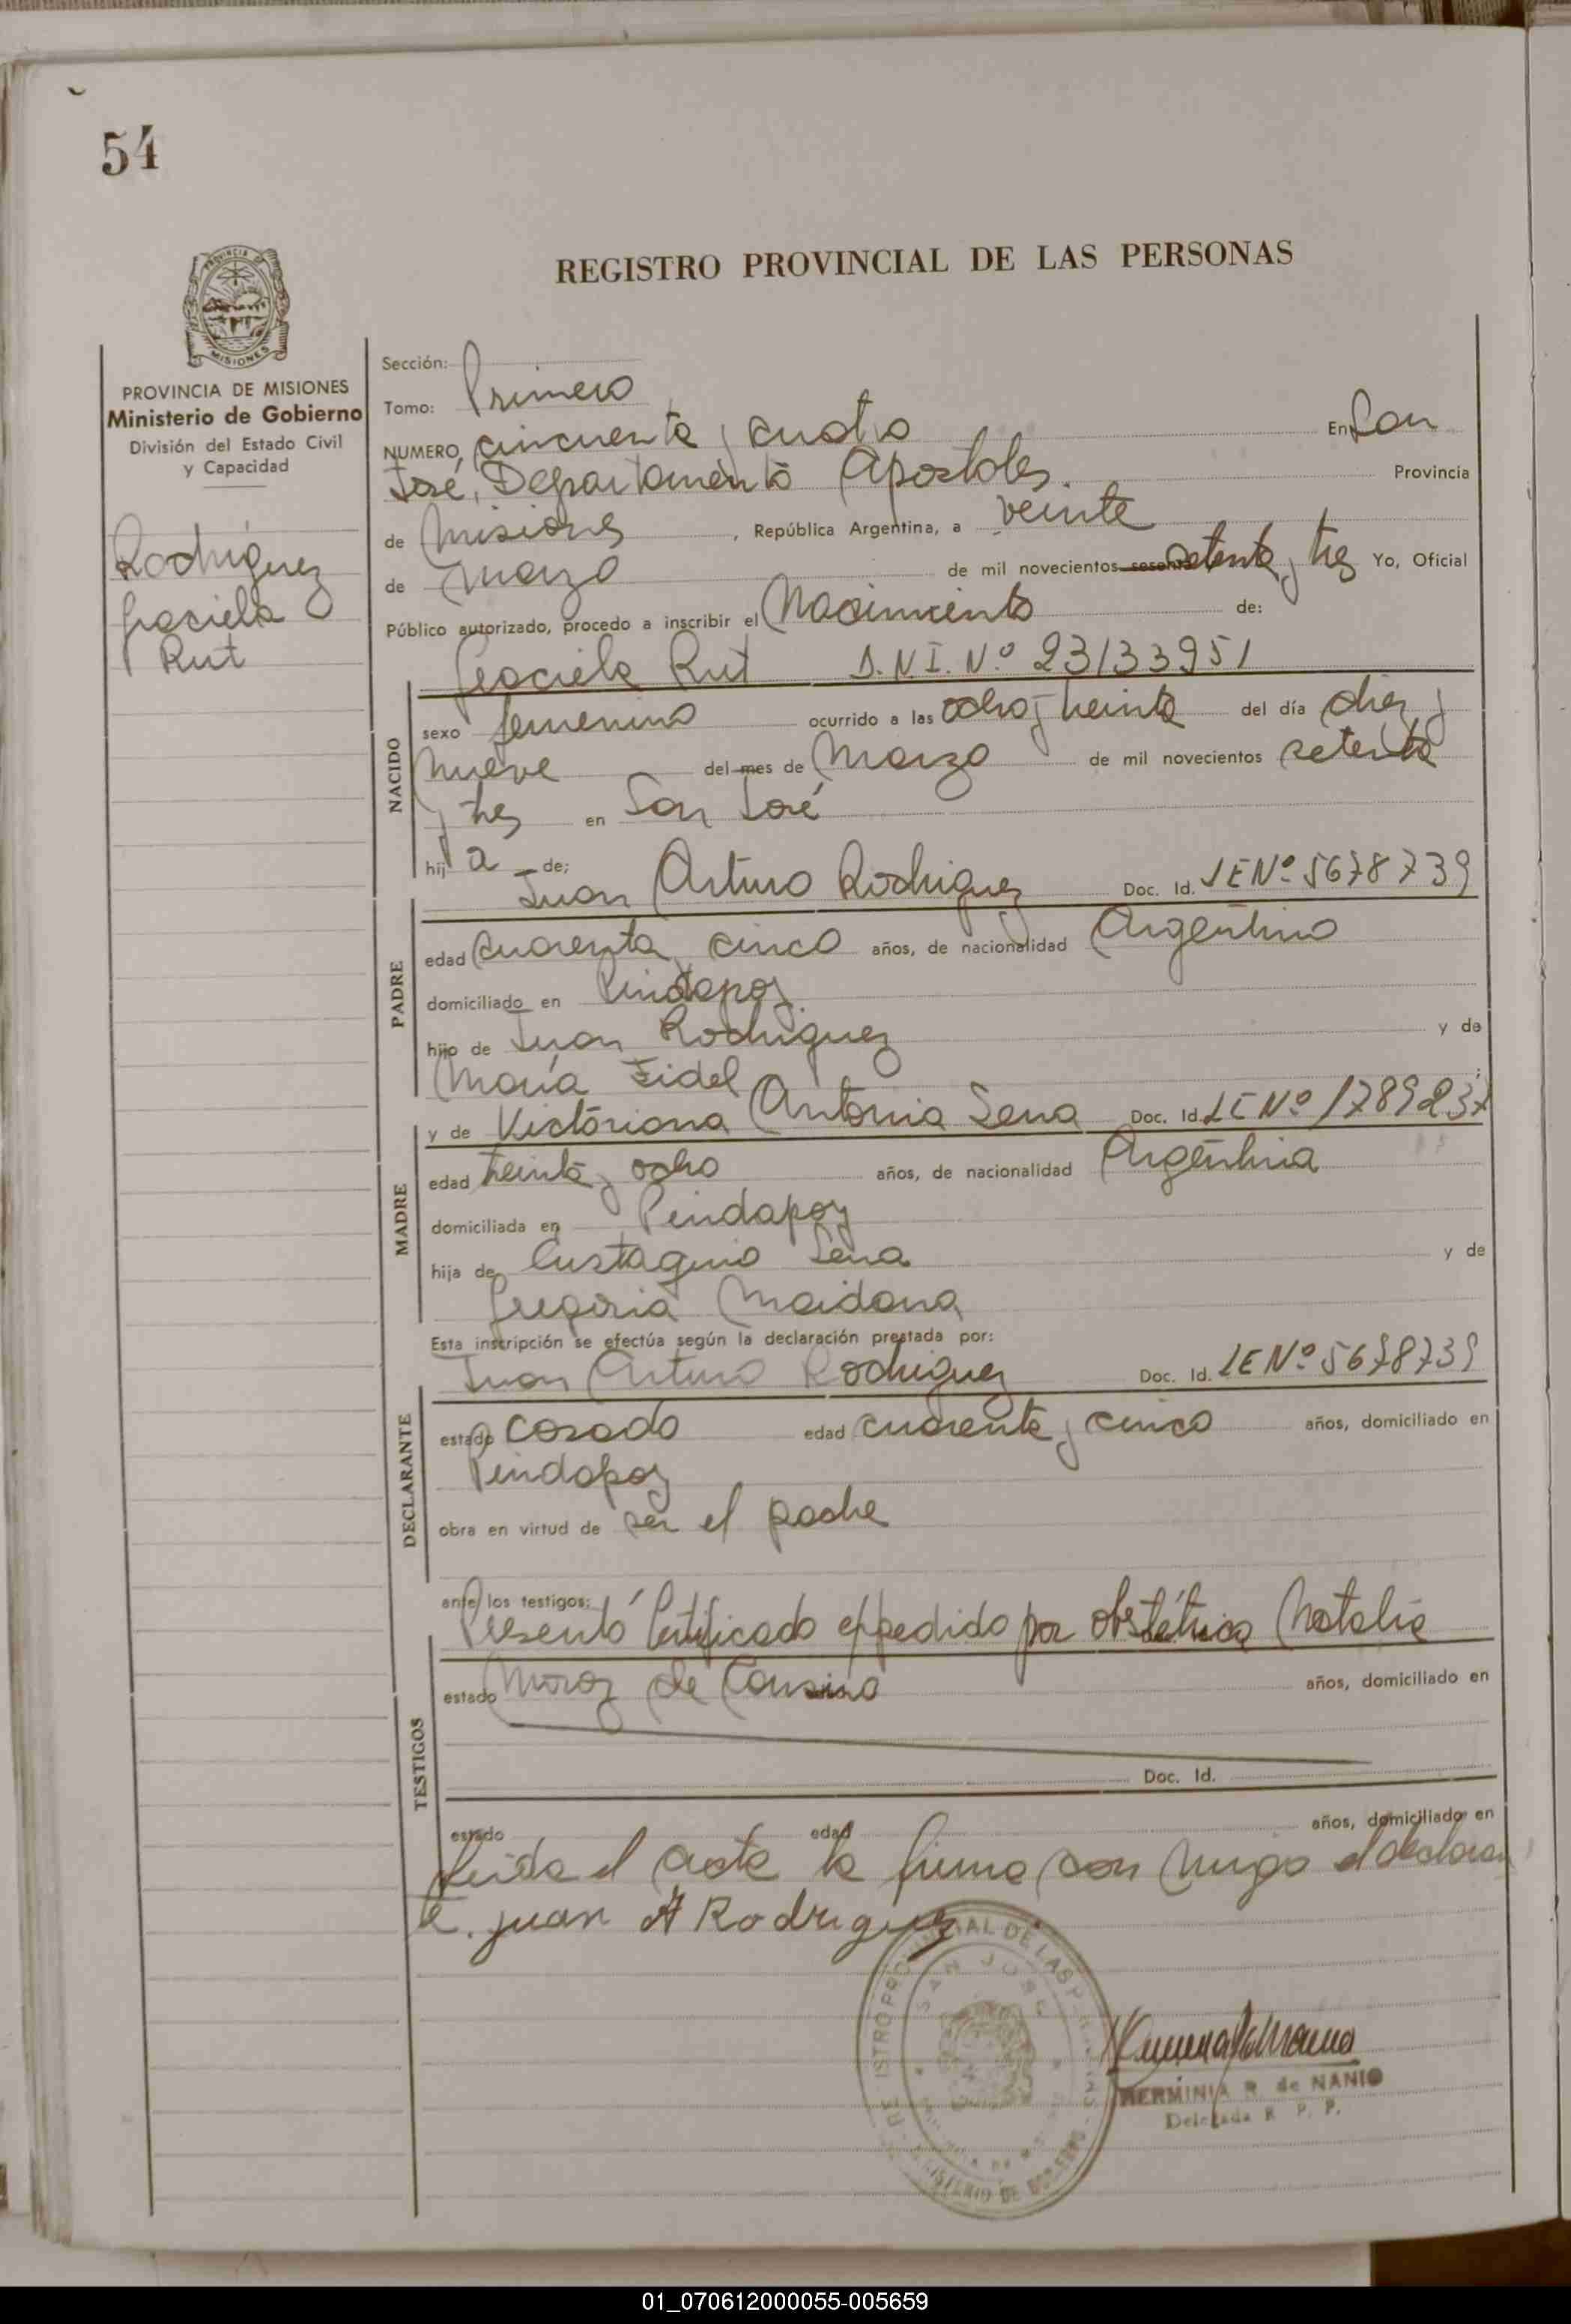 54
REGISTRO PROVINCIAL DE LAS PERSONAS
PROVINCIA DE MISIONES
MISIONES
PROVINCIA DE MISIONES
Ministerio de Gobierno
División del Estado Civil
y Capacidad
Rodriguez
Graciela
Rut
Sección:
Tomo: Primero
NUMERO cincuenta y cuatro En San
José, Departamento Apostoles. Provincia
de Misiones, República Argentina, a veinte
de Marzo de mil novecientos sesenta setenta y tres Yo, Oficial
Público autorizado, procedo a inscribir el Nacimiento de:
Graciela Rut D.N.I. Nº 23133951
NACIDO
sexo femenino ocurrido a las ocho y treinta del día diez y
nueve del mes de Marzo de mil novecientos setenta
y tres en San José
hij a de:
Juan Arturo Rodriguez Doc. Id. LE Nº 5678739
PADRE
edad cuarenta y cinco años, de nacionalidad Argentino
domiciliado en Pindapoy
hijo de Juan Rodriguez y de
María Fidel
y de Victoriana Antonia Sena Doc. Id. LC Nº 1789237
MADRE
edad treinta y ocho años, de nacionalidad Argentina
domiciliada en Pindapoy
hija de Eustaquio Sena y de
Gregoria Maidana
Esta inscripción se efectúa según la declaración prestada por:
Juan Arturo Rodriguez Doc. Id. LE Nº 5678739
DECLARANTE
estado casado edad cuarenta y cinco años, domiciliado en
Pindapoy
obra en virtud de ser el padre
ante los testigos:
Presentó Certificado expedido por obstétrica Natalia
estado Moroz de años, domiciliado en
TESTIGOS
Doc. Id.
estado edad años, domiciliado en
Leida el acta la firma con migo el declaran
te. Juan A Rodriguez
REGISTRO PROVINCIAL DE LAS PERSONAS
SAN JOSE
MINISTERIO DE GOBIERNO
HERMINIA R. de NANIO
Delegada R. P. P.
01_070612000055-005659